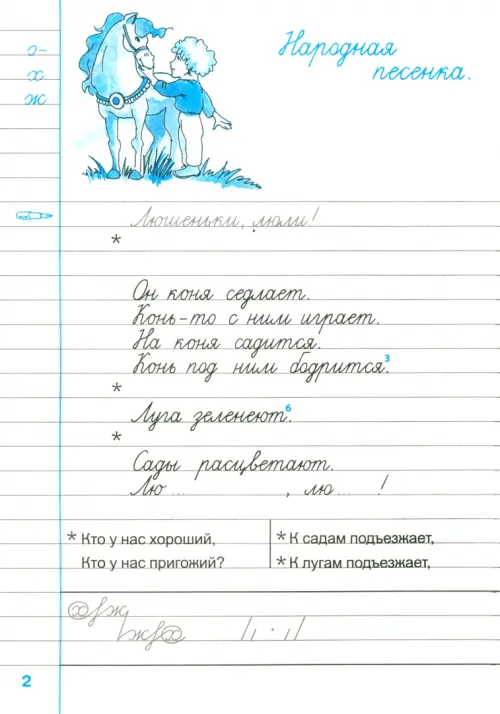 Народная
песенка.
э-
х
ж
Люшеньки, люли!
*
Он коня седлает.
Конь-то с ним играет.
На коня садится.
Конь под ним бодрится.³
*
Луга зеленеют.⁶
*
Сады расцветают.
Лю ... , лю ... !
* Кто у нас хороший,
Кто у нас пригожий?
* К садам подъезжает,
* К лугам подъезжает,
2